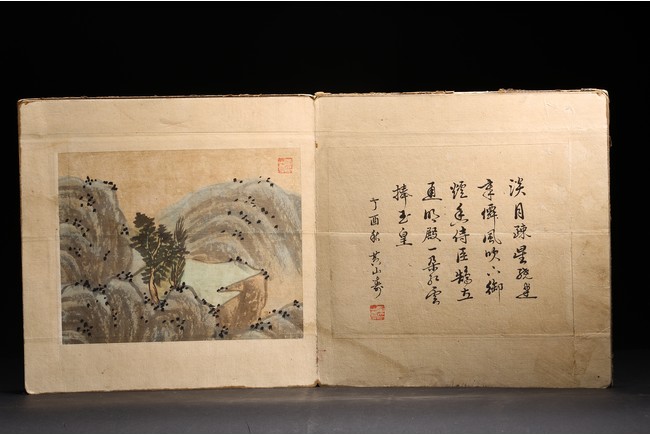 淡月疎星繞建
章僊風吹下御
爐香侍臣鵠立
通明殿一朵紅雲
捧玉皇
丁酉秋 黄山壽